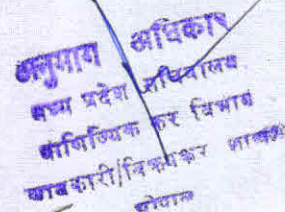 अनुभाग अधिकारी
मध्य प्रदेश सचिवालय
वाणिज्यिक कर विभाग
आबकारी/विक्रयकर शाखा
भोपाल